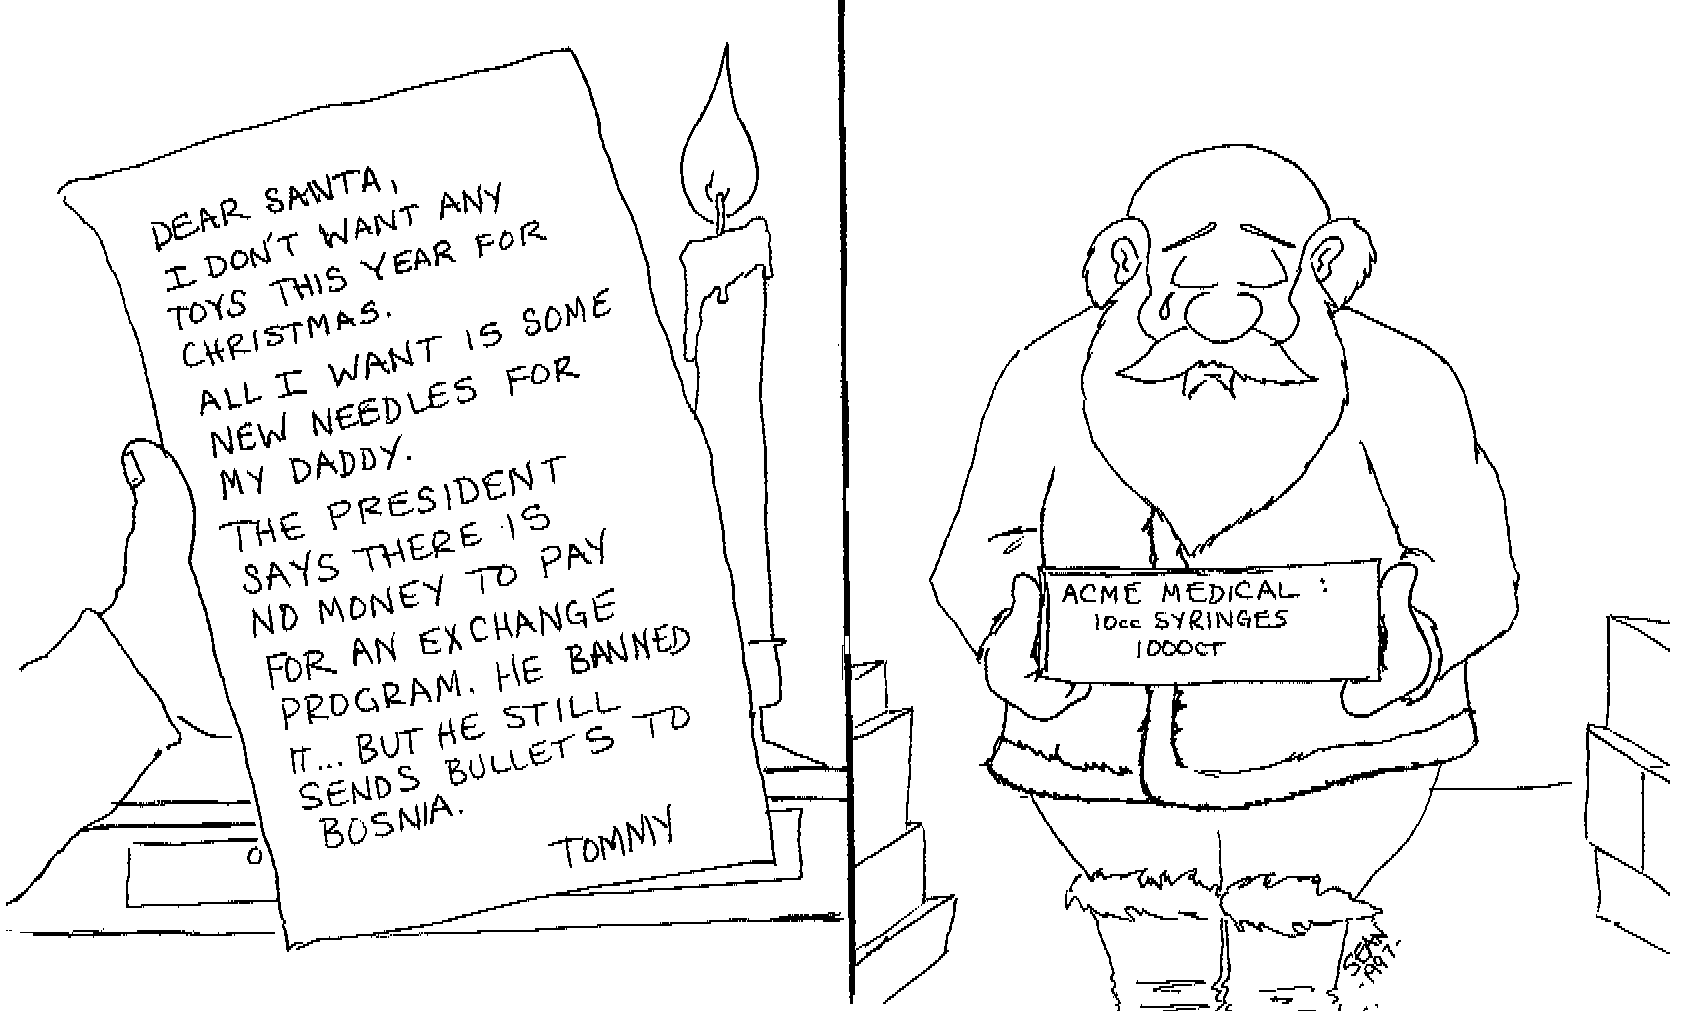 DEAR SANTA,
I DON'T WANT ANY
TOYS THIS YEAR FOR
CHRISTMAS.
ALL I WANT IS SOME
NEW NEEDLES FOR
MY DADDY.
THE PRESIDENT
SAYS THERE IS
NO MONEY TO PAY
FOR AN EXCHANGE
PROGRAM. HE BANNED
IT... BUT HE STILL
SENDS BULLETS TO
BOSNIA.
TOMMY
ACME MEDICAL :
10cc SYRINGES
1000CT
SEAN
-1997-